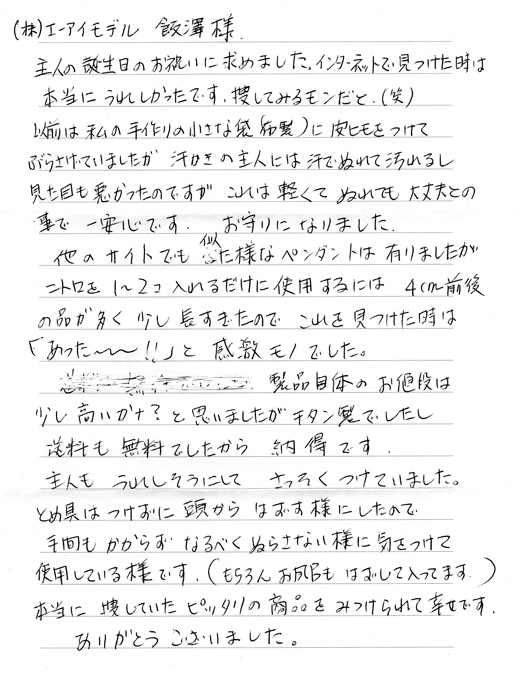 (株)エーアイモデル 飯澤様.
主人の誕生日のお祝いに求めました。インターネットで見つけた時は
本当にうれしかったです。捜してみるモンだと.(笑)
以前は私の手作りの小さな袋(布製)に皮ヒモをつけて
ぶらさげていましたが 汗かきの主人には汗でぬれて汚れるし
見た目も悪かったのですが これは軽くて ぬれても大丈夫との
事で 一安心です. お守りになりました.
他のサイトでも似た様なペンダントは有りましたが
ニトロを1〜2コ入れるだけに使用するには 4cm前後
の品が多く 少し長すぎたので これを見つけた時は
「あった〜〜!!」と 感激モノでした。
製品自体のお値段は
少し高いかナ?と思いましたがチタン製でしたし
送料も無料でしたから 納得です.
主人も うれしそうにして さっそくつけていました。
とめ具はつけずに 頭から はずす様にしたので
手間もかからず なるべくぬらさない様に気をつけて
使用している様です.(もちろんお風呂もはずして入ってます.)
本当に 捜していた ピッタリの商品をみつけられて幸せです.
ありがとうございました。